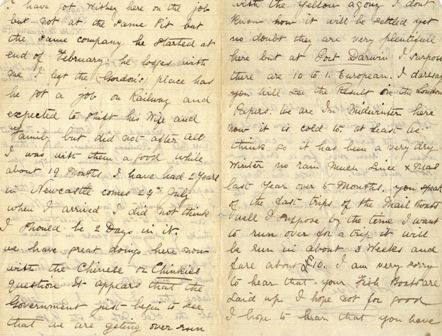 I have got Wishey here on the job
but not at the same Pit but
the same company he started at
end of February. he loges with
me I left the Gordon's place has
he got a job on Railway and
expected to shift his Wife and
Family but did not after all
I was with them a good while
about 19 Months. I have had 2 Years
in Newcastle comes 29th July
when I arrived I did not think
I should be 2 Days in it.
we have great doings here now
with the Chinese or Chinkies
question. It appears that the
Government just begin to see
that we are geting over run
with the Yellow agony I dont
know how it will be settled yet
no doubt they are very plentifull
here but at Port Darwin I suppose
there are 10 to 1. European. I daresay
you will see the Result on the London
Papers. We are In Midwinter here
now it is cold to at least we
think so it has been a very dry
Winter no rain much since Xmas
last year over 5 Months. you speak
of the fast trips of the Mail Boats
well I suppose by the time I want
to run over for a trip it will
be run in about 3 Weeks and
fare about £10. I am very sorry
to hear that your Fish Boats are
Laid up I hope not for good
I hope to hear that you have